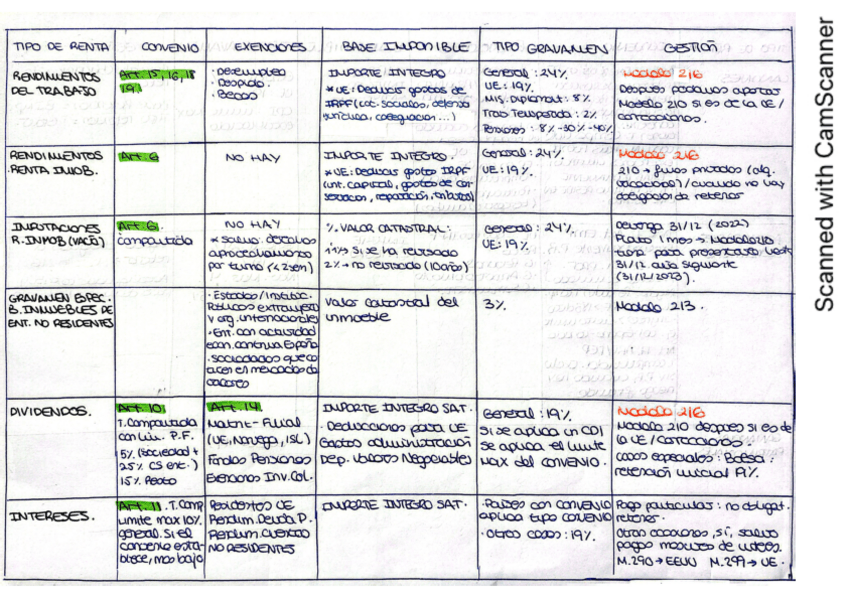 TIPO DE RENTA CONVENIO EXENCIONES BASE IMPONIBLE TIPO GRAVAMEN GESTIÓN
RENDIMIENTOS
DEL TRABAJO
Art. 15, 16, 18
19.
· Desempleo
· Despido.
· Becas
IMPORTE INTEGRO
* UE: Deducir gastos de
IRPF (cot. sociales, defensa
jurídica, colegiación...)
General: 24%.
UE: 19%.
Mis. Diplomat: 8%
Trab Temporada: 2%
Pensiones: 8% -30% -40%
Modelo 216
Después podamos aportar
Modelo 210 si es de la UE /
correcciones.
RENDIMIENTOS
RENTA INMOB.
Art. 6
NO HAY
IMPORTE INTEGRO.
* UE: Deducir gastos IRPF
(int. capital, gastos de con
servación, reparación, tributos)
General: 24%.
UE: 19%.
Modelo 216
210 → fines privados (alq.
vacacional) / cuando no hay
obligación de retener
IMPUTACIONES
R. INMOB (VACÍO)
Art. 6.
compartida
NO HAY
* salvo: derechos
aprovechamiento
por turno (< 2 sem)
% VALOR CATASTRAL:
1'1% si se ha revisado
2% → no revisado (10 años)
General: 24%.
UE: 19%
Devenga 31/12 (2022)
31/12 año siguiente
(31/12/2023).
GRAVAMEN ESPEC.
B. INMUEBLES DE
ENT. NO RESIDENTES
· Estados / Instituc.
Públicas extranjeras
y org. internacionales
· Ent. con actividad
econ. continua España
· sociedades que co
valores
Valor catastral del
inmueble
3%.
Modelo 213.
DIVIDENDOS.
Art. 10:
T. Compartida
con Lim. P.F.
5% (sociedad +
25% CS ent.)
15% Resto
Art. 14.
Matriz - Filial
(UE, Noruega, ISL)
Fondos Pensiones
IMPORTE INTEGRO SAT.
· Deducciones para UE
Gastos administración
Dep. Valores Negociables
General: 19%.
Si se aplica un CDI
se aplica el límite
MAX del CONVENIO.
Modelo 216
Modelo 210 después si es de
la UE / correcciones.
casos especiales: Bolsa:
retención inicial 19%.
INTERESES.
Art. 11. T. Comp
Límite max 10%.
general. Si el
convenio esta-
blece, mas bajo
Residentes UE
Rendim. Deuda P.
Rendim. cuentas
NO RESIDENTES
IMPORTE INTEGRO SAT.
· Países con CONVENIO
aplica tipo CONVENIO
· Otros casos: 19%.
Pago particular: no obligat.
retener.
M.290 → EEUU M.299 → UE.
Scanned with CamScanner